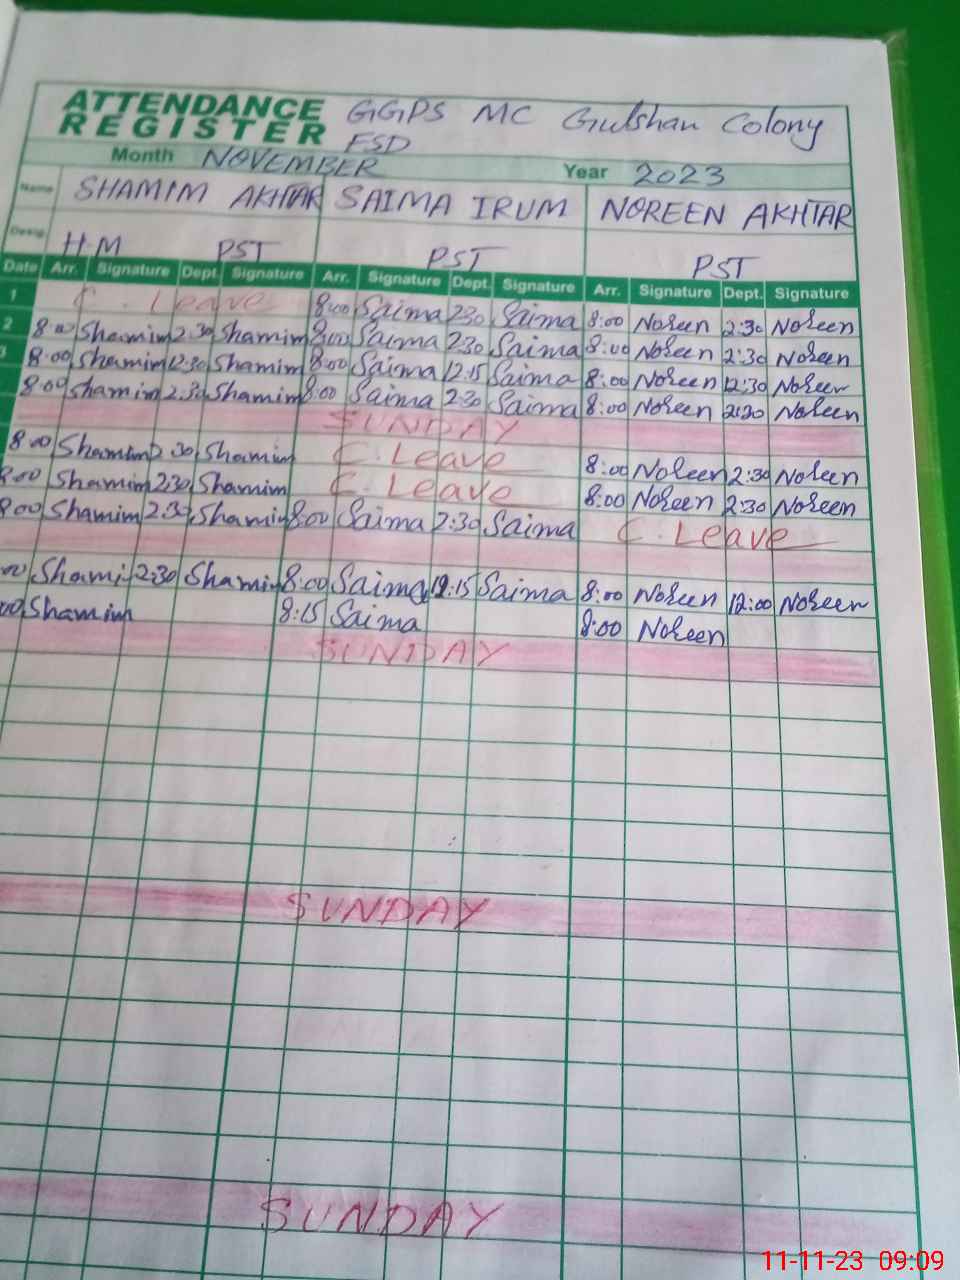 ATTENDANCE REGISTER GGPS MC Gulshan Colony FSD
Month NOVEMBER Year 2023
Name SHAMIM AKHTAR SAIMA IRUM NOREEN AKHTAR
Desig. H.M PST PST PST
Date Arr. Signature Dept. Signature Arr. Signature Dept. Signature Arr. Signature Dept. Signature
1 C. Leave 8:00 Saima 2:30 Saima 8:00 Noreen 2:30 Noreen
2 8:00 Shamim 2:30 Shamim 8:00 Saima 2:30 Saima 8:00 Noreen 2:30 Noreen
3 8:00 Shamim 12:30 Shamim 8:00 Saima 12:15 Saima 8:00 Noreen 12:30 Noreen
8:00 Shamim 2:30 Shamim 8:00 Saima 2:30 Saima 8:00 Noreen 2:30 Noreen
SUNDAY
8:00 Shamim 2:30 Shamim C. Leave 8:00 Noreen 2:30 Noreen
8:00 Shamim 2:30 Shamim C. Leave 8:00 Noreen 2:30 Noreen
8:00 Shamim 2:30 Shamim 8:00 Saima 2:30 Saima C. Leave
:00 Shami 2:30 Shamim 8:00 Saima 12:15 Saima 8:00 Noreen 12:00 Noreen
00 Shamim 8:15 Saima 8:00 Noreen
SUNDAY
SUNDAY
SUNDAY
11-11-23 09:09